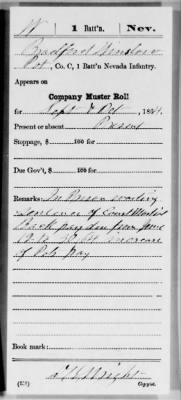 W | 1 Batt'n. | Nev.
Bradford Winslow
Pvt, Co. C, 1 Batt'n Nevada Infantry.
Appears on
Company Muster Roll
for Sept & Oct, 1864.
Present or absent Present
Stoppage, $ 100 for
Due Gov't, $ 100 for
Remarks: In Prison awaiting
sentence of Court Martial
Back pay due from June
of Pvts pay
Book mark:
Wright
Copyist.